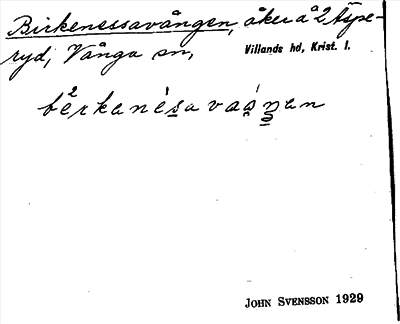 Birkenessavången, åker å 2 Äspe-
ryd, Vånga sn, Villands hd, Krist. l.
JOHN SVENSSON 1929